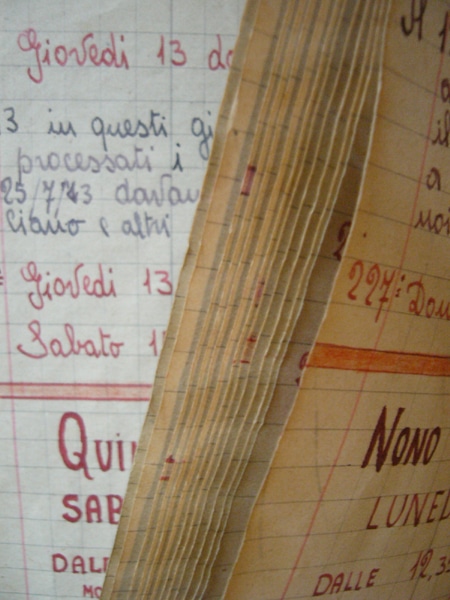 Giovedi 13 da
3 in questi gi
processati i
25/7/43 davan
liano e altri
Giovedi 13
Sabato 1
QUIN
SAB
DALL
MO
Il 1
il
a
noi
227: Dom
NONO
LUNED
DALLE 12,35